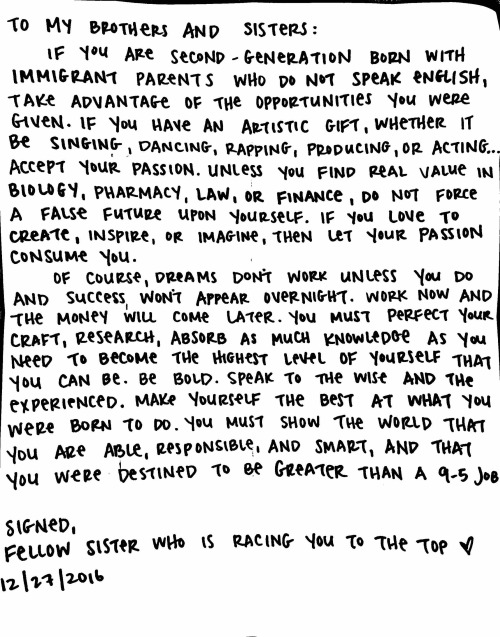 TO MY BROTHERS AND SISTERS:
IF YOU ARE SECOND-GENERATION BORN WITH
IMMIGRANT PARENTS WHO DO NOT SPEAK ENGLISH,
TAKE ADVANTAGE OF THE OPPORTUNITIES YOU WERE
GIVEN. IF YOU HAVE AN ARTISTIC GIFT, WHETHER IT
BE SINGING, DANCING, RAPPING, PRODUCING, OR ACTING...
ACCEPT YOUR PASSION. UNLESS YOU FIND REAL VALUE IN
BIOLOGY, PHARMACY, LAW, OR FINANCE, DO NOT FORCE
A FALSE FUTURE UPON YOURSELF. IF YOU LOVE TO
CREATE, INSPIRE, OR IMAGINE, THEN LET YOUR PASSION
CONSUME YOU.
OF COURSE, DREAMS DON'T WORK UNLESS YOU DO
AND SUCCESS WON'T APPEAR OVERNIGHT. WORK NOW AND
THE MONEY WILL COME LATER. YOU MUST PERFECT YOUR
CRAFT, RESEARCH, ABSORB AS MUCH KNOWLEDGE AS YOU
NEED TO BECOME THE HIGHEST LEVEL OF YOURSELF THAT
YOU CAN BE. BE BOLD. SPEAK TO THE WISE AND THE
EXPERIENCED. MAKE YOURSELF THE BEST AT WHAT YOU
WERE BORN TO DO. YOU MUST SHOW THE WORLD THAT
YOU ARE ABLE, RESPONSIBLE, AND SMART, AND THAT
YOU WERE DESTINED TO BE GREATER THAN A 9-5 JOB
SIGNED,
FELLOW SISTER WHO IS RACING YOU TO THE TOP ♡
12/27/2016